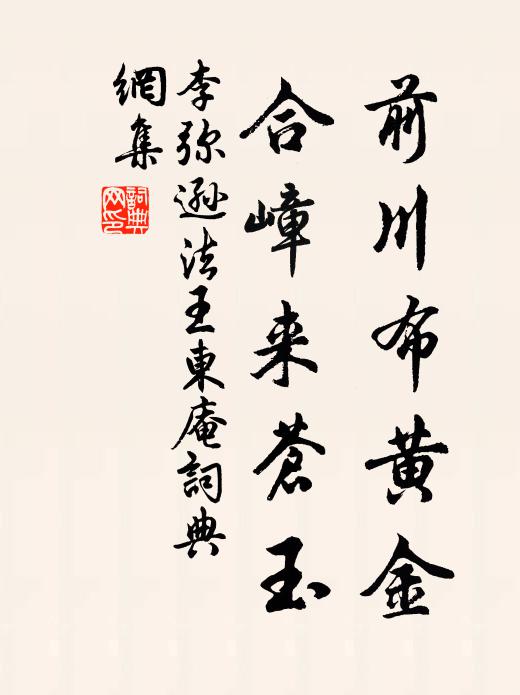 前川布黄金
合嶂来苍玉
李弥遜法王東庵詞典
網集
詞典
网印